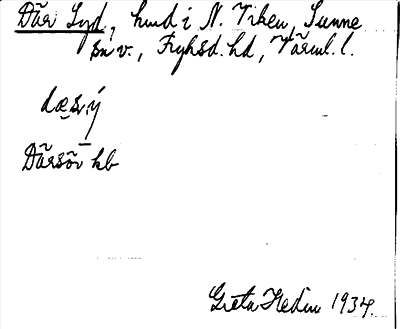 Där Syd, hmd i N. Viken, Sunne
sn v., Fryksd. hd, Värml. l.
Därsöi kb
Greta Hedin 1934.